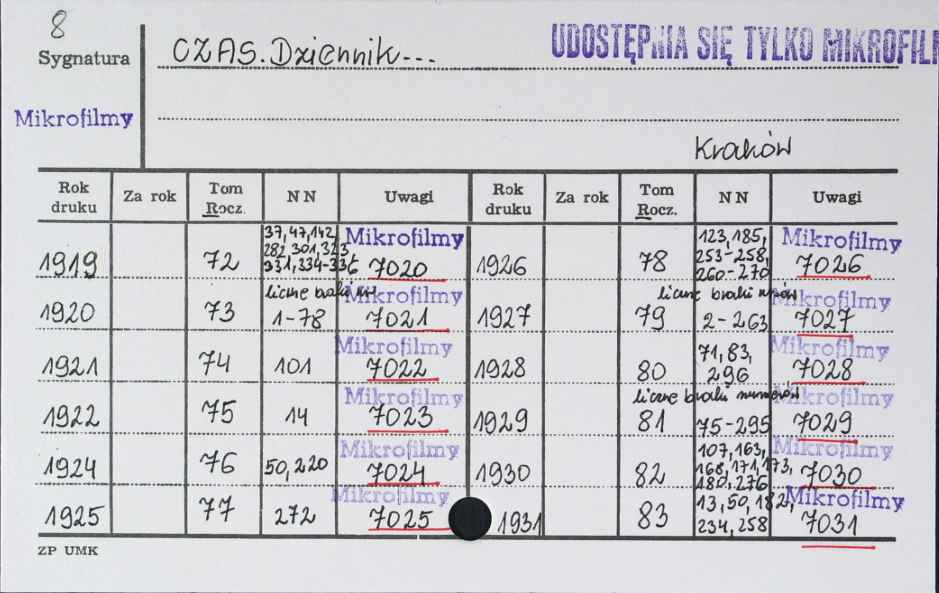 8
Sygnatura CZAS. Dziennik... UDOSTĘPNIA SIĘ TYLKO MIKROFIL
Mikrofilmy
Kraków
Rok druku Za rok Tom Rocz. NN Uwagi Rok druku Za rok Tom Rocz. NN Uwagi
1919 72 37, 47, 142, 282, 301, 323, 331, 334-336 Mikrofilmy 7020 1926 78 123, 185, 253-258, 260-270 Mikrofilmy 7026
1920 73 liczne braki 1-78 Mikrofilmy 7021 1927 79 liczne braki 2-263 Mikrofilmy 7027
1921 74 101 Mikrofilmy 7022 1928 80 71, 83, 296 Mikrofilmy 7028
1922 75 14 Mikrofilmy 7023 1929 81 liczne braki numerów 75-295 Mikrofilmy 7029
1924 76 50, 220 Mikrofilmy 7024 1930 82 107, 163, 168, 171, 173, 180, 276 Mikrofilmy 7030
1925 77 272 Mikrofilmy 7025 1931 83 13, 50, 182, 234, 258 Mikrofilmy 7031
ZP UMK